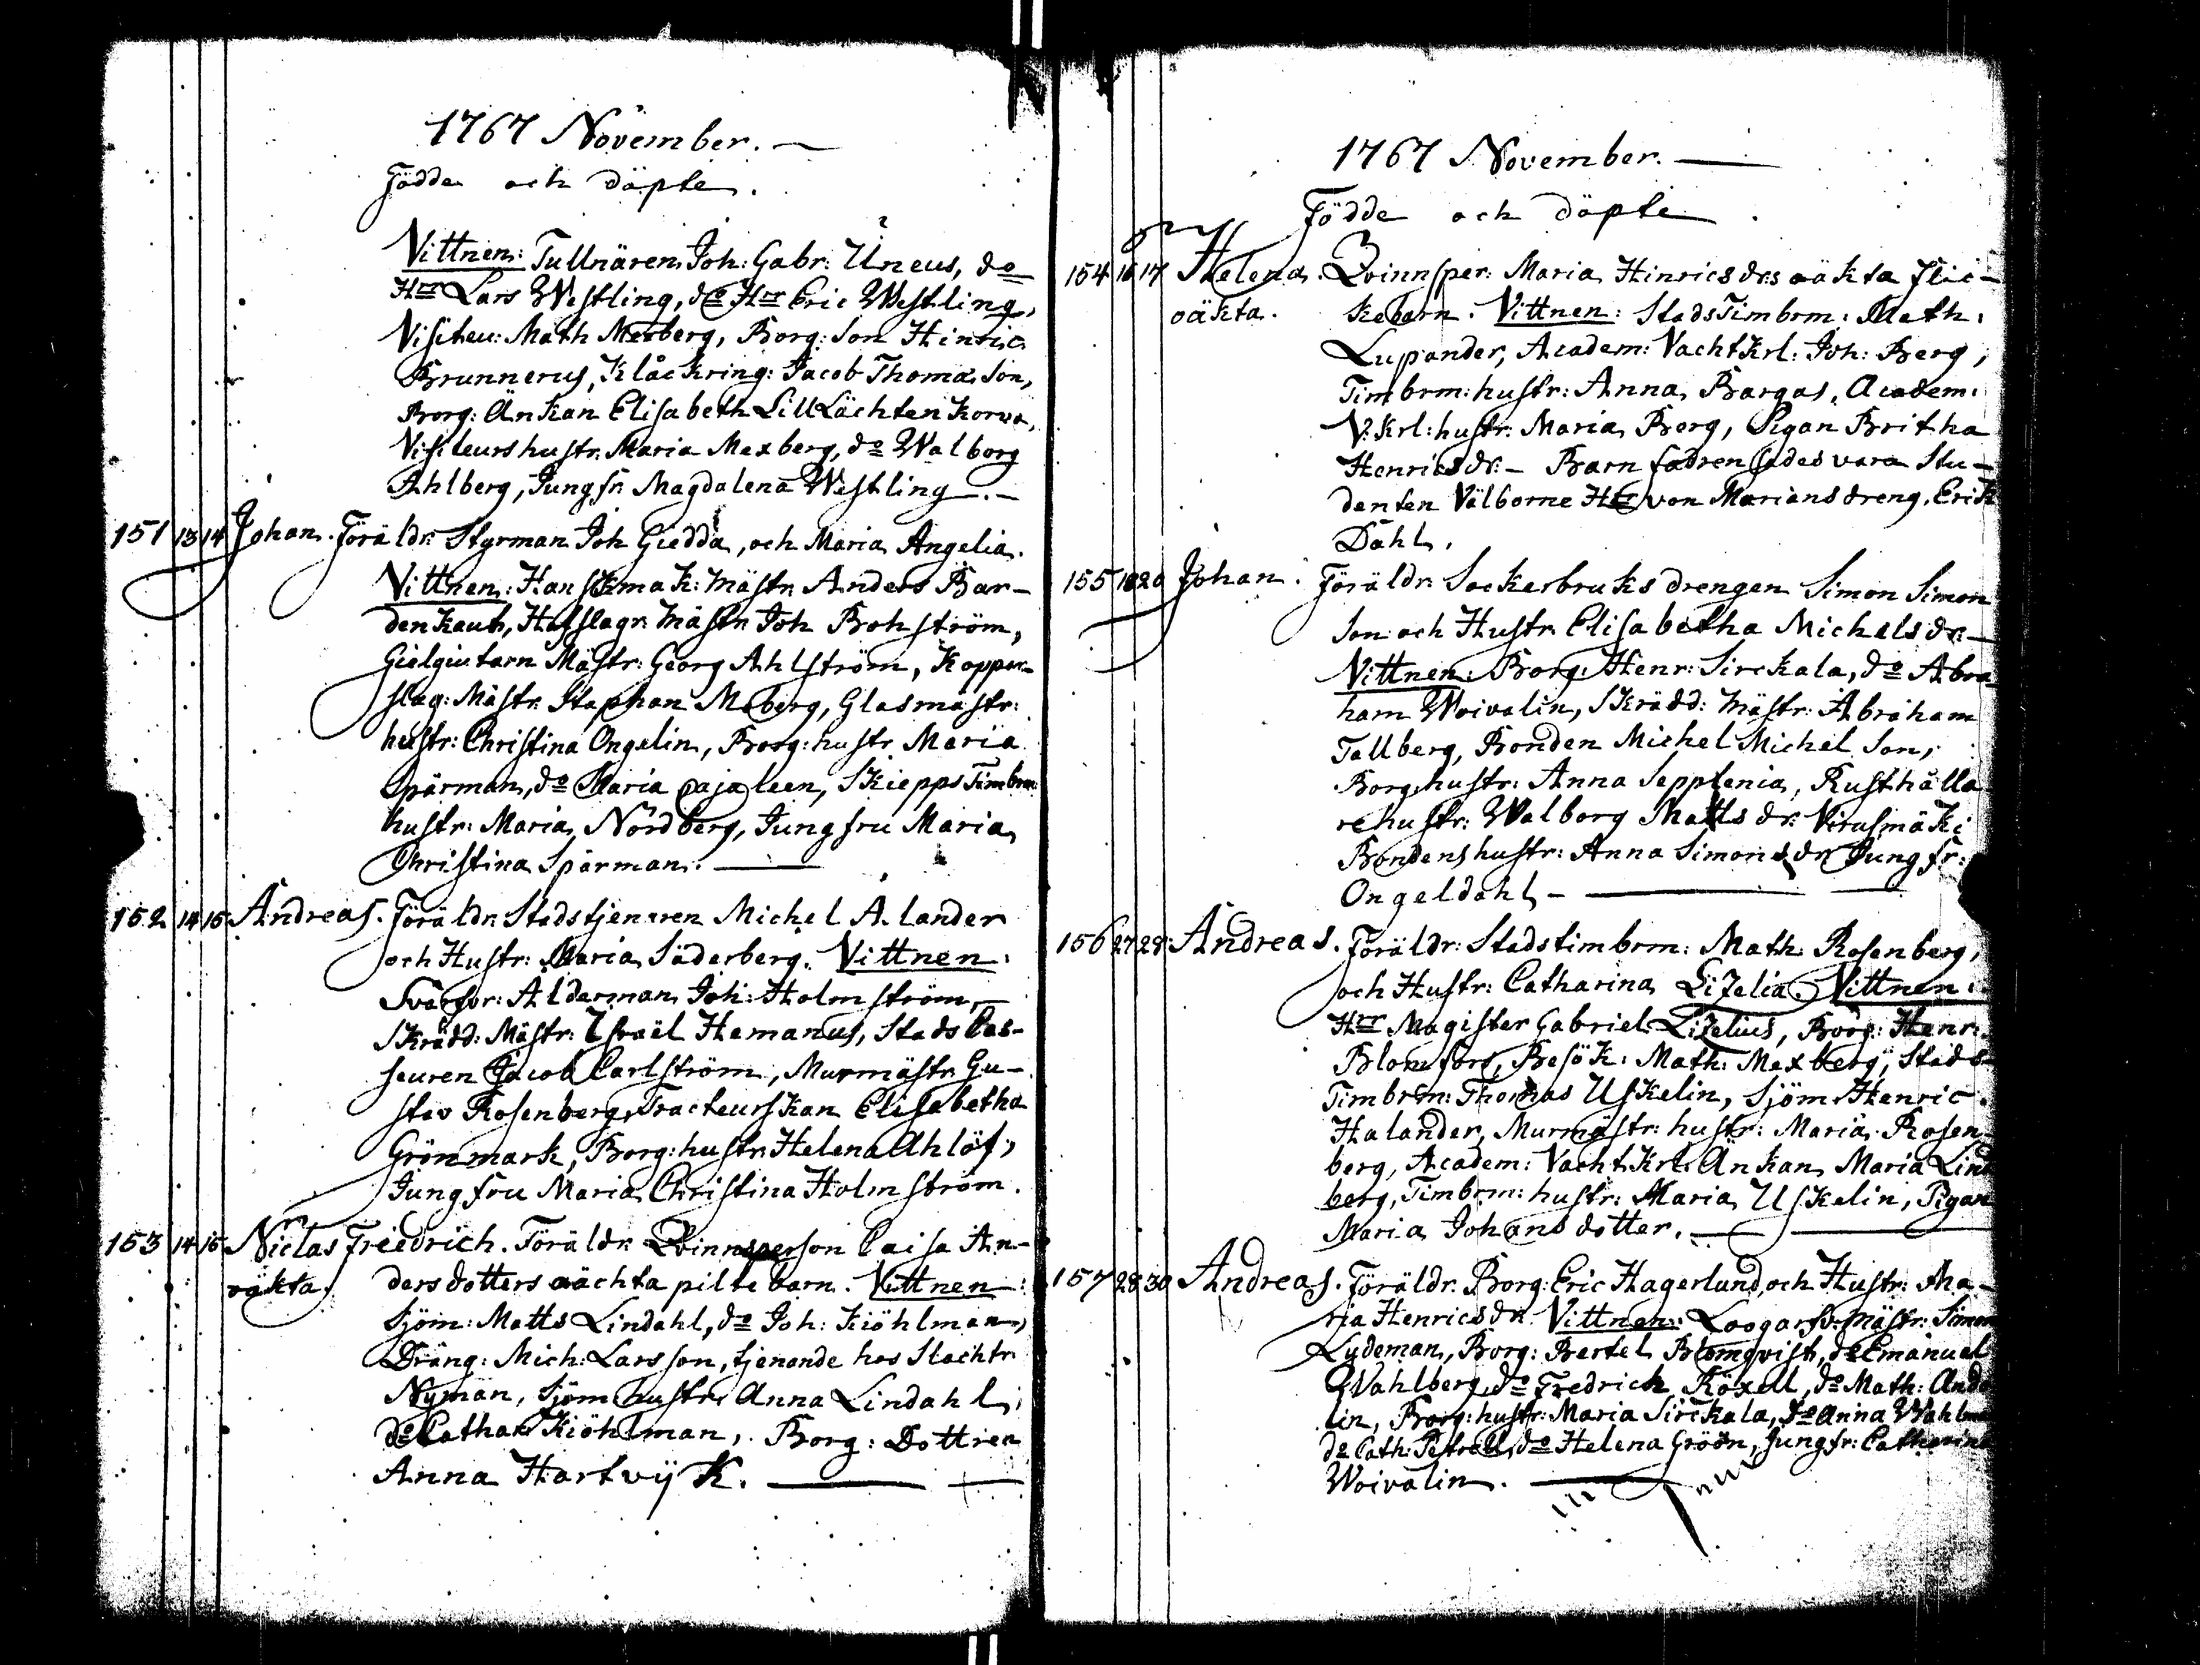 1767 November. —
Födde och döpte.
Vittnen: Tullnären Joh: Gabr: Uneus, do
Hrr Lars Westling, do Hrr Eric Westling,
Visiteu: Math Mexberg, Borg: Son Hinric
Brunnerus, Klåckring: Jacob Thomas Son,
Borg: Änkan Elisabeth Lill Lächten Korva,
Visiteurs hustr: Maria Mexberg, do Walborg
Ahlberg, Jungfr: Magdalena Westling —.—
151 13 14 Johan. Föräldr: Styrman Joh Giedda, och Maria Angelia.
Vittnen: Hanskmak: Mästr: Anders Bar-
denkaut, Hatslagr: Mästr: Joh Bohström,
Gielgiutarn Mästr: Georg Ahlström, Koppar-
slag: Mästr: Staphan Moberg, Glasmästr:
hustr: Christina Ongelin, Borg: hustr Maria
Spärman, do Maria Cajaleen, Skiepps Timbrm:
hustr: Maria Nordberg, Jungfru Maria
Christina Spärman. —
152 14 15 Andreas. Föräldr: Stadstjenaren Michel Alander
och Hustr: Maria Säderberg. Vittnen:
Svarfvr: Alderman Joh: Holmström,
Skrädd: Mästr: Israël Hemanus, Stads Cas-
seuren Jacob Carlström, Murmästr: Gu-
stav Rosenberg, Tracteurskan Elisabetha
Grönmark, Borg: hustr: Helena Ahlöf,
Jungfru Maria Christina Holmström.
153 14 15 Niclas Friedrich. Föräldr: Qvinnsperson Caisa An-
oäkta. dersdotters oächta piltebarn. Vittnen:
Sjöm: Matts Lindahl, do Joh: Kiöhlman,
Dräng: Mich: Larsson, tjenande hos Slachtr
Nyman, Sjöm hustr: Anna Lindahl,
do Cathar: Kiöhlman, Borg: Dottren
Anna Hartvijk. —
1767 November. —
Födde och döpte
154 16 17 Helena. Qvinnsper: Maria Hinricsdrs oäkta flic-
oäkta. kebarn. Vittnen: Stads Timbrm: Math:
Lupander, Academ: Vachtkrl: Joh: Berg,
Timbrm: hustr: Anna Bargas, Academ:
V: Krl: hustr: Maria Berg, Pigan Britha
Henricsdr: — Barnfadren sades vara Stu-
denten Välborne Hrr von Mariansdreng, Erik
Dahl.
155 18 20 Johan. Föräldr: Sockerbruksdrengen Simon Simon
Son och Hustr: Elisabetha Michelsdr: —
Vittnen: Borg: Henr: Sirckala, do Abra-
ham Woivalin, Skrädd: Mästr: Abraham
Tallberg, Bonden Michel Michel Son,
Borg: hustr: Anna Sepptenia, Rusthålla
rehustr: Walborg Mattsdr: Virusmäki
Bondens hustr: Anna Simonsdr: Jungfr:
Ongeldahl —
156 27 28 Andreas. Föräldr: Stadstimbrm: Math: Rosenberg,
och Hustr: Catharina Lizelia. Vittnen:
Hrr Magister Gabriel Lizelius, Borg: Henr:
Blomfors, Besök: Math: Mexberg, Stads-
Timbrm: Thomas Uskelin, Sjöm: Henric
Halander, Murmästr: hustr: Maria Rosen-
berg, Academ: Vacht Krl: Änkan Maria Lind
berg, Timbrm: hustr: Maria Uskelin, Pigan
Maria Johansdotter. —
157 28 30 Andreas. Föräldr: Borg: Eric Hagerlund, och Hustr: Ma-
ria Henricsdr: Vittnen: Loogarfv: Mästr: Simon
Lydeman, Borg: Bertel Blomqvist, do Emanuel
Wahlberg, do Fredrich Röxell, do Math: Ande
lin, Borg: hustr: Maria Sirckala, do Anna Wahlm
do Cath: Petrell, do Helena Gröön, Jungfr: Catharina
Woivalin. —